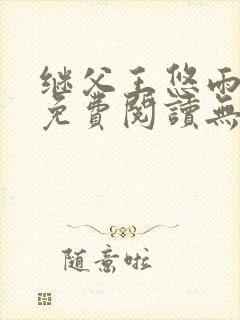 继父王悠雨
免費閱讀無
随意啦